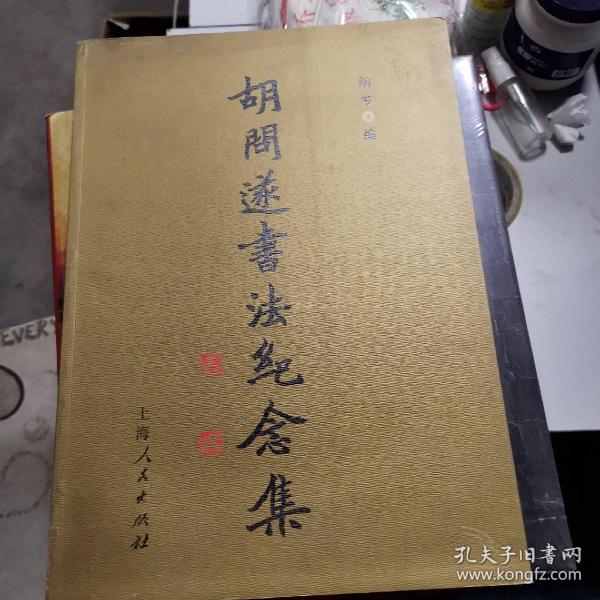 胡問遂書法紀念集
上海人民出版社
EVERY
孔夫子旧书网
www.kongfz.com